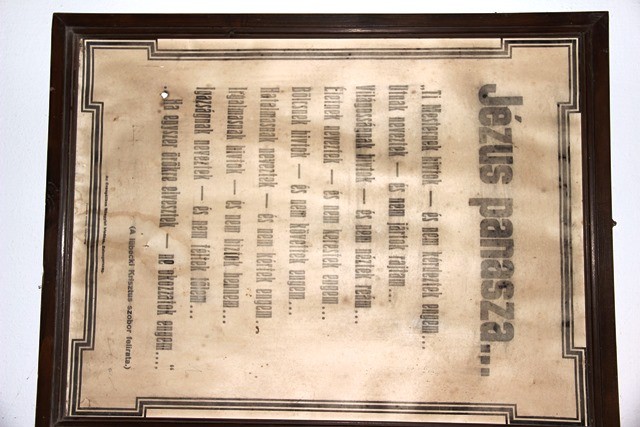 Jézus panasza...
„Ti Mesternek hívtok — és nem kérdeztek engem...
Útnak neveztek — és nem jártok rajtam...
Világosságnak hívtok — és nem néztek reám...
Életnek neveztek — és nem kerestek engem...
Bölcsnek hívtok — és nem követtek engem...
Hatalmasnak neveztek — és nem kértek engem...
Irgalmasnak hívtok — és nem bíztok bennem...
Igazságnak neveztek — és nem féltek tőlem...
Ha egyszer örökre elvesztek — ne okozzatok engem...."
(A lübecki Krisztus-szobor felirata.)